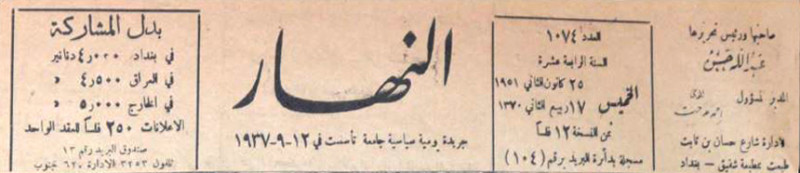 صاحبها ورئيس تحريرها
عبدالله حسن
المدير المسؤول
الادارة شارع حسان بن ثابت
طبعت بمطبعة شفيق - بغداد
العدد ١٠٧٤
السنة الرابعة عشرة
٢٥ كانون الثاني ١٩٥١
الخميس ١٧ ربيع الثاني ١٣٧٠
ثمن النسخة ١٢ فلساً
مسجلة بدائرة البريد برقم (١٠٤)
النهار
جريدة يومية سياسية جامعة تأسست في ١٢-٩-١٩٣٧
بدل المشاركة
في بغداد ٤٫٠٠٠ دنانير
في العراق ٤٫٥٠٠ «
في الخارج ٥٫٠٠٠ «
الاعلانات ٢٥٠ فلساً للعقد الواحد
صندوق البريد رقم ١٣
تلفون ٣٢٥٣ الادارة ٦٢٠ جنوب